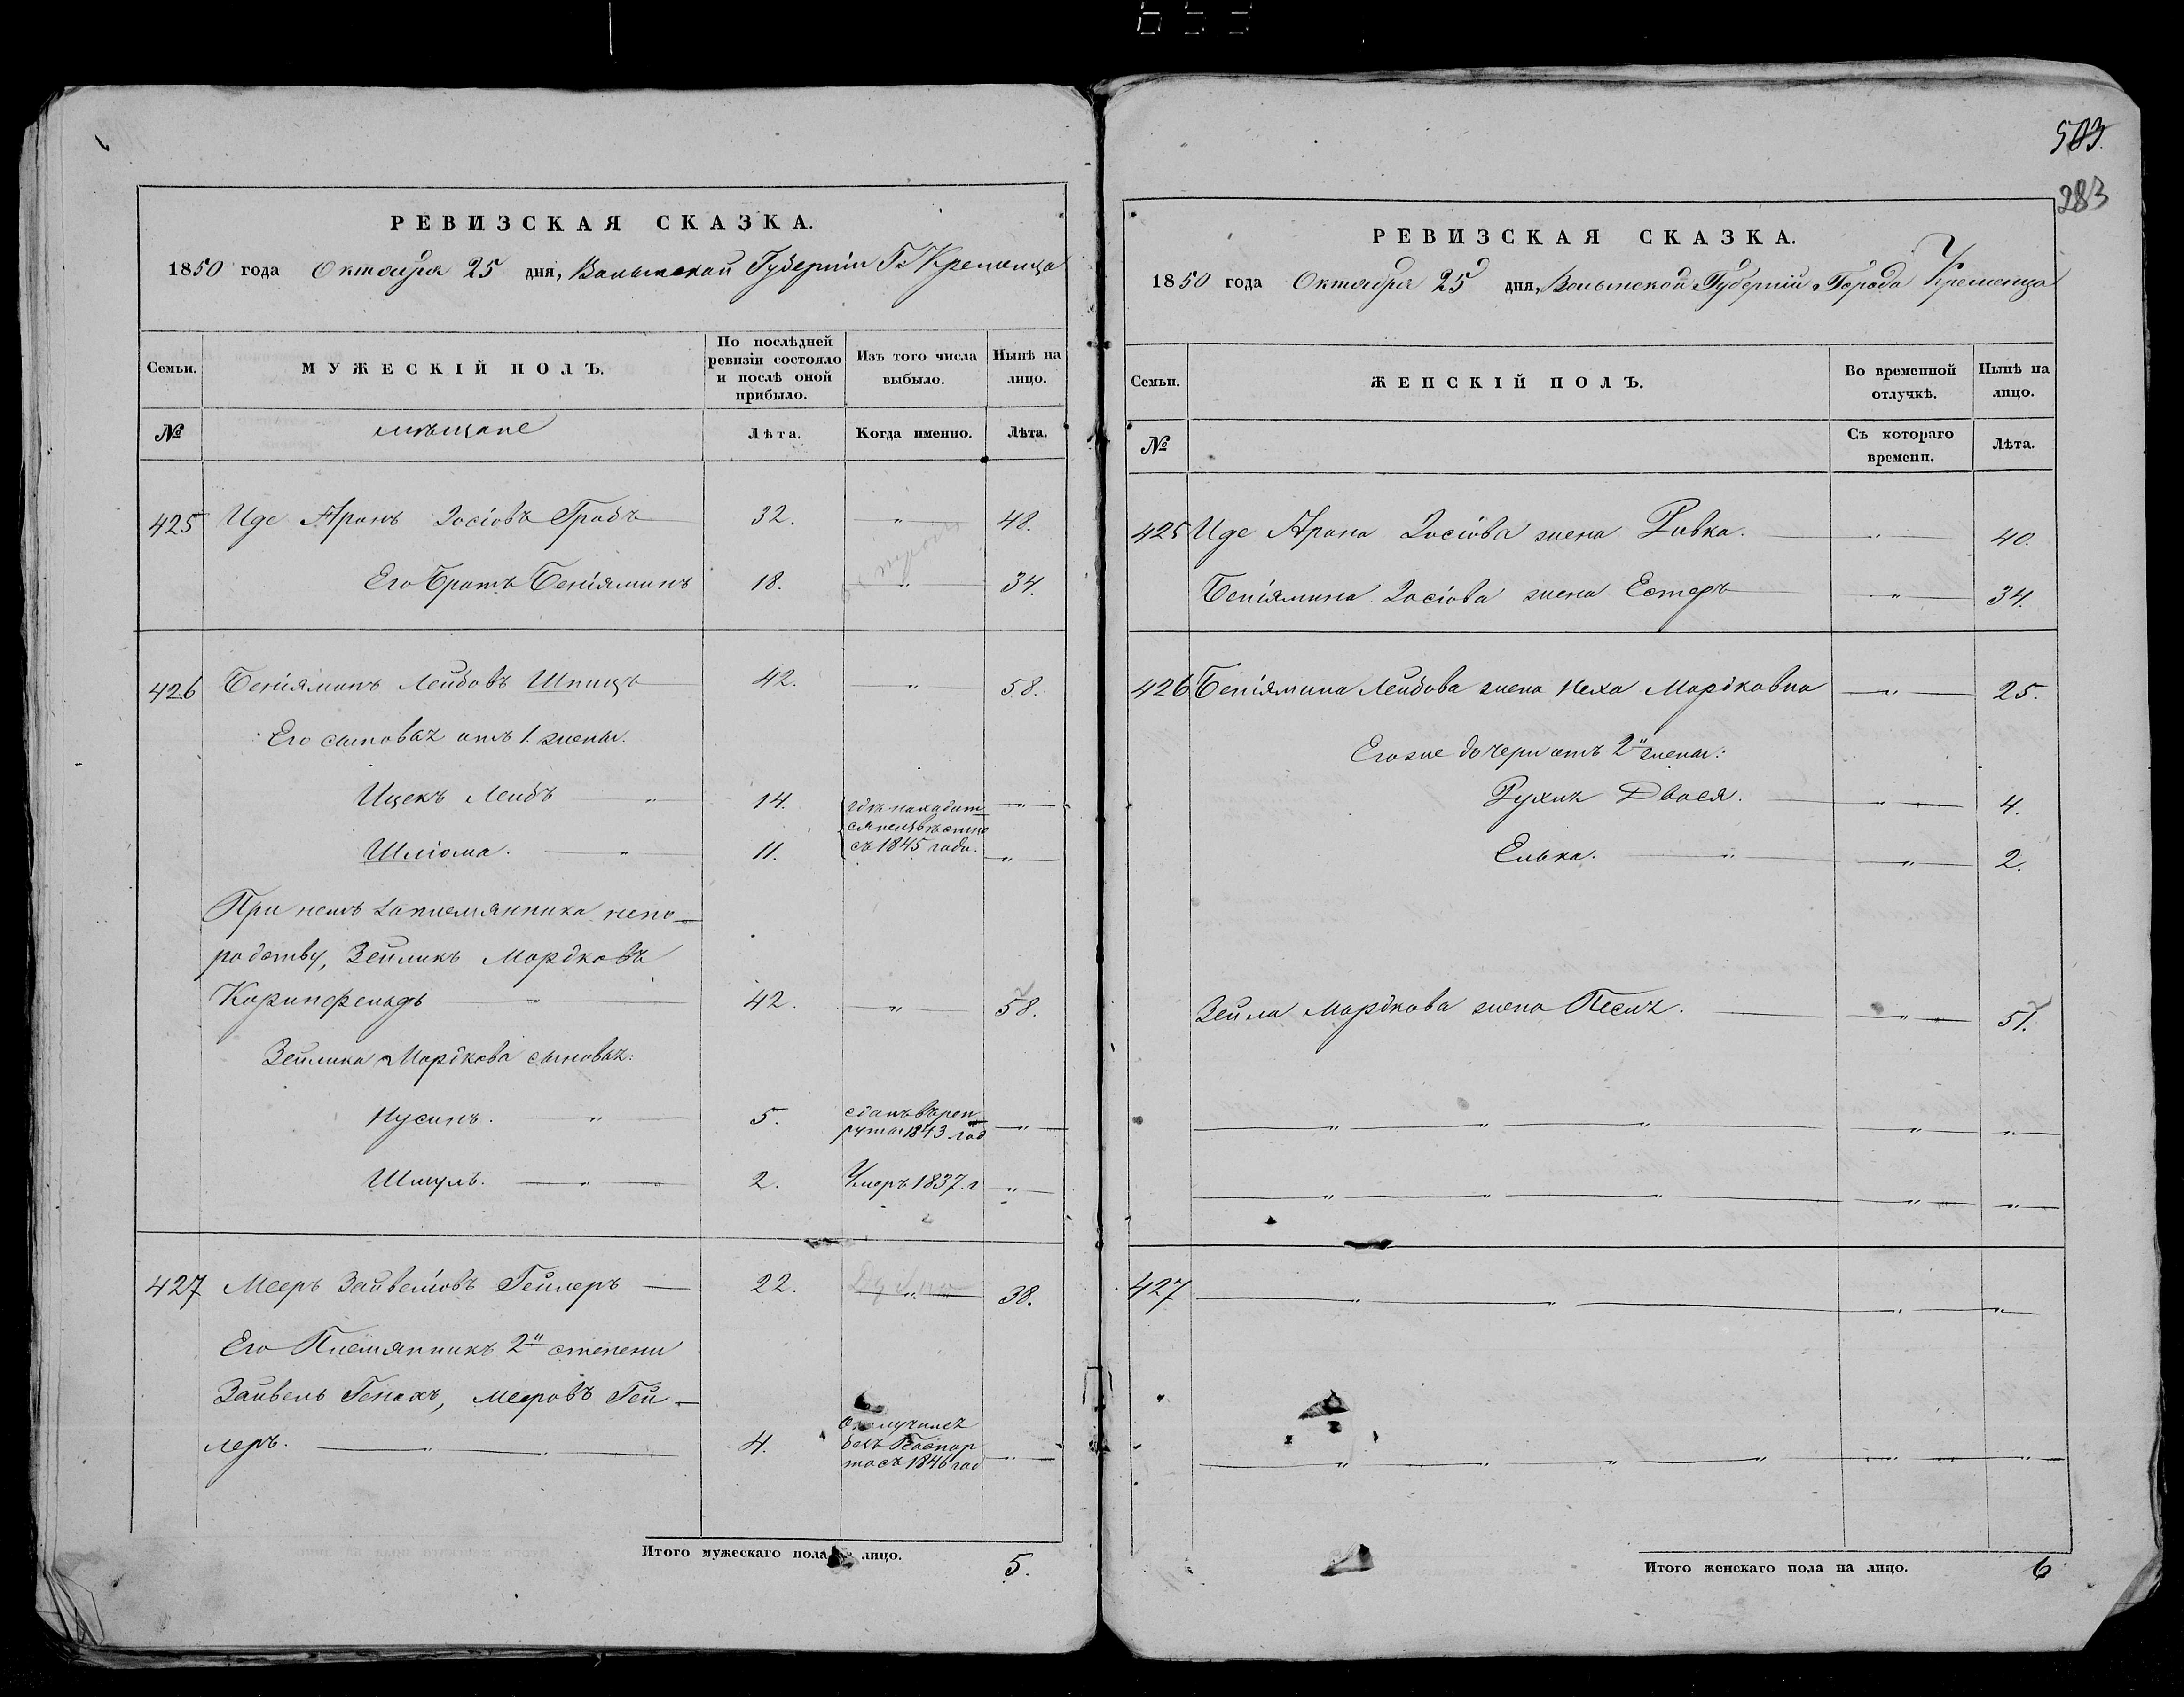 РЕВИЗСКАЯ СКАЗКА.
1850 года Октября 25 дня, Волынской Губерніи Г. Кременца
Семьи.
МУЖЕСКІЙ ПОЛЪ.
По послѣдней ревизіи состояло и послѣ оной прибыло.
Изъ того числа выбыло.
Нынѣ на лицо.
№
мѣщане
Лѣта.
Когда именно.
Лѣта.
425 Иде Аронъ Іосіовъ Градъ 32. " 48.
Его Братъ Беніяминъ 18. " 34.
426 Беніяминъ Лейбовъ Шпицъ 42. " 58.
Его сыновья отъ 1. жены.
Ицекъ Лейбъ " 14. "
гдѣ находит
ся неизвѣстно
съ 1845 года.
Шліома. " 11. "
При немъ непо-
родству, Зейликъ Мордковъ
42. " 58.
Зейлика Мордкова сыновья:
Нусинъ. " 5. "
сданъ въ рек
руты 1843 год
Шмуль. " 2. Умеръ 1837. г "
427 Мееръ Зайвеліовъ Гейлеръ 22. " 38.
Его Племянникъ 2й степени
Зайвель Генахъ, Мееровъ Гей-
леръ. 4. "
отлучился
безъ Паспор
та съ 1846 год
Итого мужескаго пола на лицо. 5.
503.
283
РЕВИЗСКАЯ СКАЗКА.
1850 года Октября 25 дня, Волынской Губерніи Города Кременца
Семьи.
ЖЕНСКІЙ ПОЛЪ.
Во временной отлучкѣ.
Нынѣ на лицо.
№
Съ котораго времени.
Лѣта.
425 Иде Арона Іосіова жена Ривка. " 40.
Беніямина Іосіова жена Естеръ " 34.
426 Беніямина Лейбова жена Неха Мордковна " 25.
Его же дочери отъ 2й жены:
Рухля Двося. " 4.
Елька. " " 2.
Зейла Мордкова жена Песя. " 51.
" " " " "
" " " " "
427 " " " "
" " " " " "
Итого женскаго пола на лицо. 6